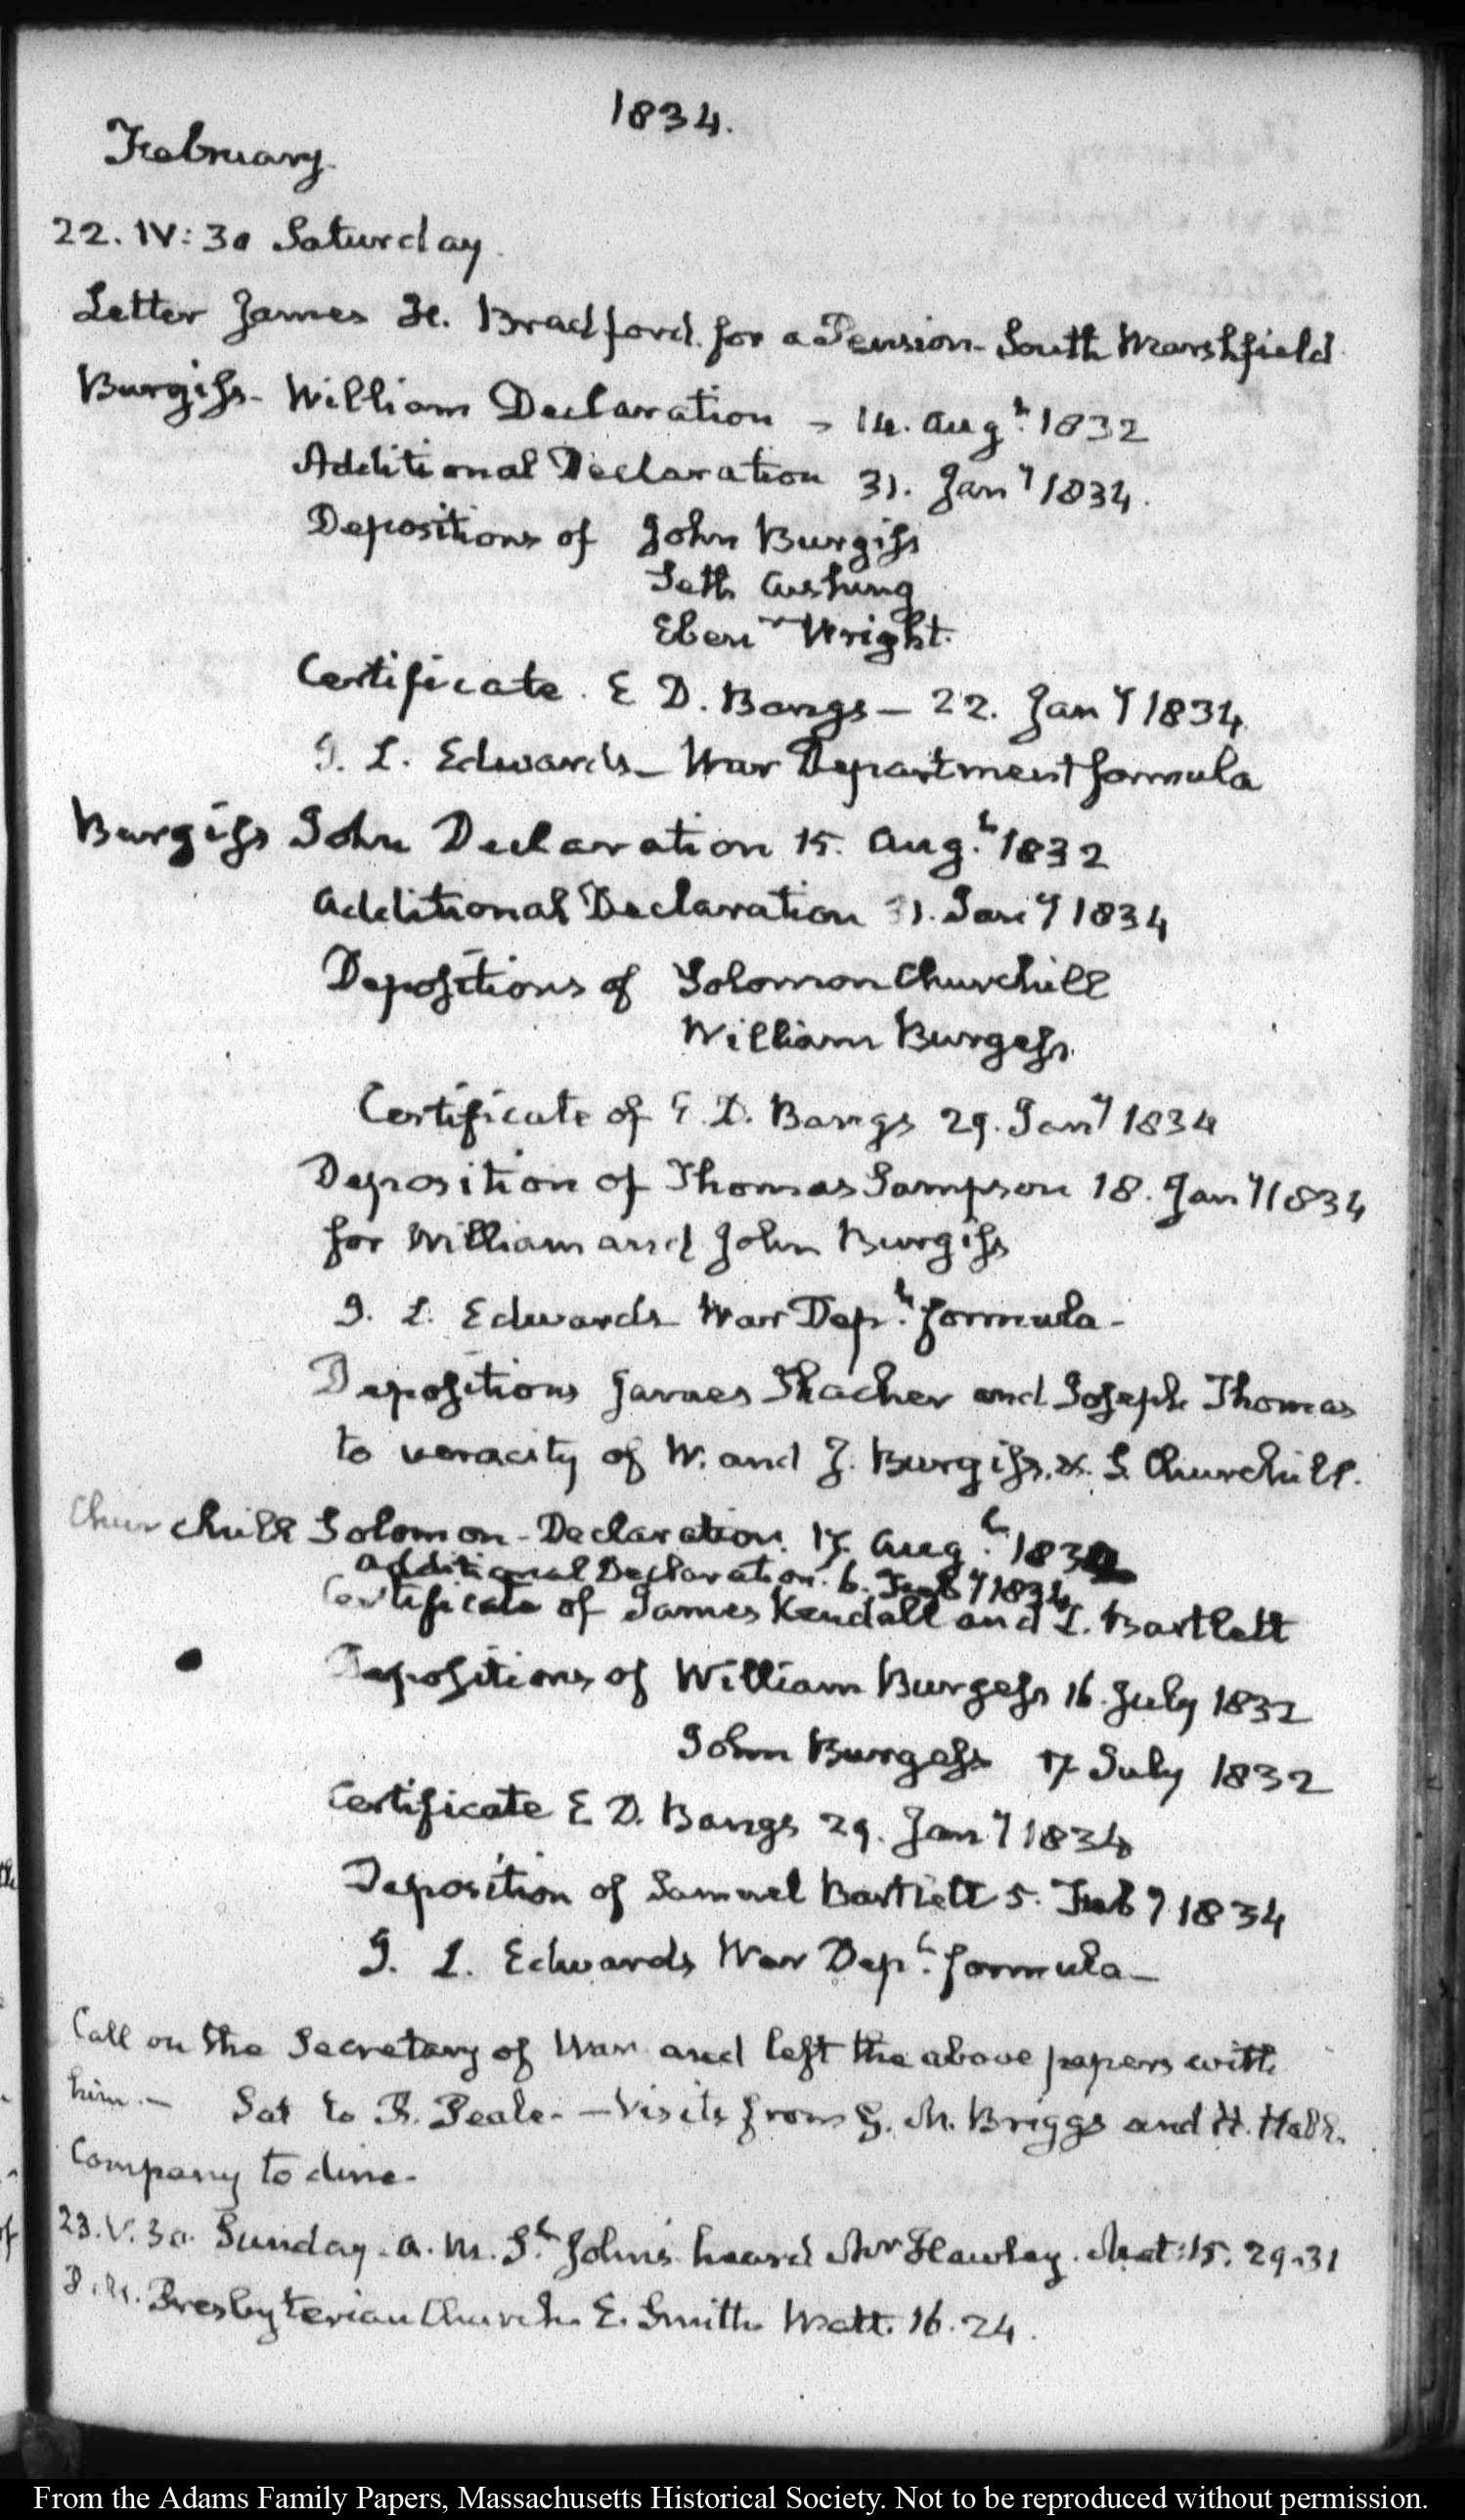 1834.
February.
22. IV: 30 Saturday.
Letter James H. Bradford. for a Pension - South Marshfield.
Burgiss - William Declaration - 14. Augt. 1832
Additional Declaration 31. Jany 1834.
Depositions of John Burgiss
Seth Cushing
Ebenr Wright.
Certificate. E D. Bangs - 22. Jany 1834
J. L. Edwards - War Department formula
Burgiss John Declaration 15. Augt. 1832
Additional Declaration 31. Jany 1834
Depositions of Solomon Churchill
William Burgess.
Certificate of E. D. Bangs 29. Jany 1834
Deposition of Thomas Sampson 18. Jany 1834
for William and John Burgiss
J. L. Edwards War Dept. formula -
Depositions James Thacher and Joseph Thomas
to veracity of W. and J. Burgiss, & S. Churchill.
Churchill Solomon - Declaration. 17. Augt. 1832
Additional Declaration. 6. Feby 1834
Certificate of James Kendall and I. Bartlett
Depositions of William Burgess 16. July 1832
John Burgess 17 July 1832
Certificate E D. Bangs 29. Jany 1834
Deposition of Samuel Bartlett 5. Feby 1834
J. L. Edwards War Dept. formula -
Call on the Secretary of War and left the above papers with
him. - Sat to R. Peale. - Visits from G. N. Briggs and H. Hall.
Company to dine.
23. V. 30. Sunday. A. M. St. Johns heard Mr Hawley. Mat: 15. 29-31
P. M. Presbyterian Church. E. Smith Matt. 16. 24.
From the Adams Family Papers, Massachusetts Historical Society. Not to be reproduced without permission.